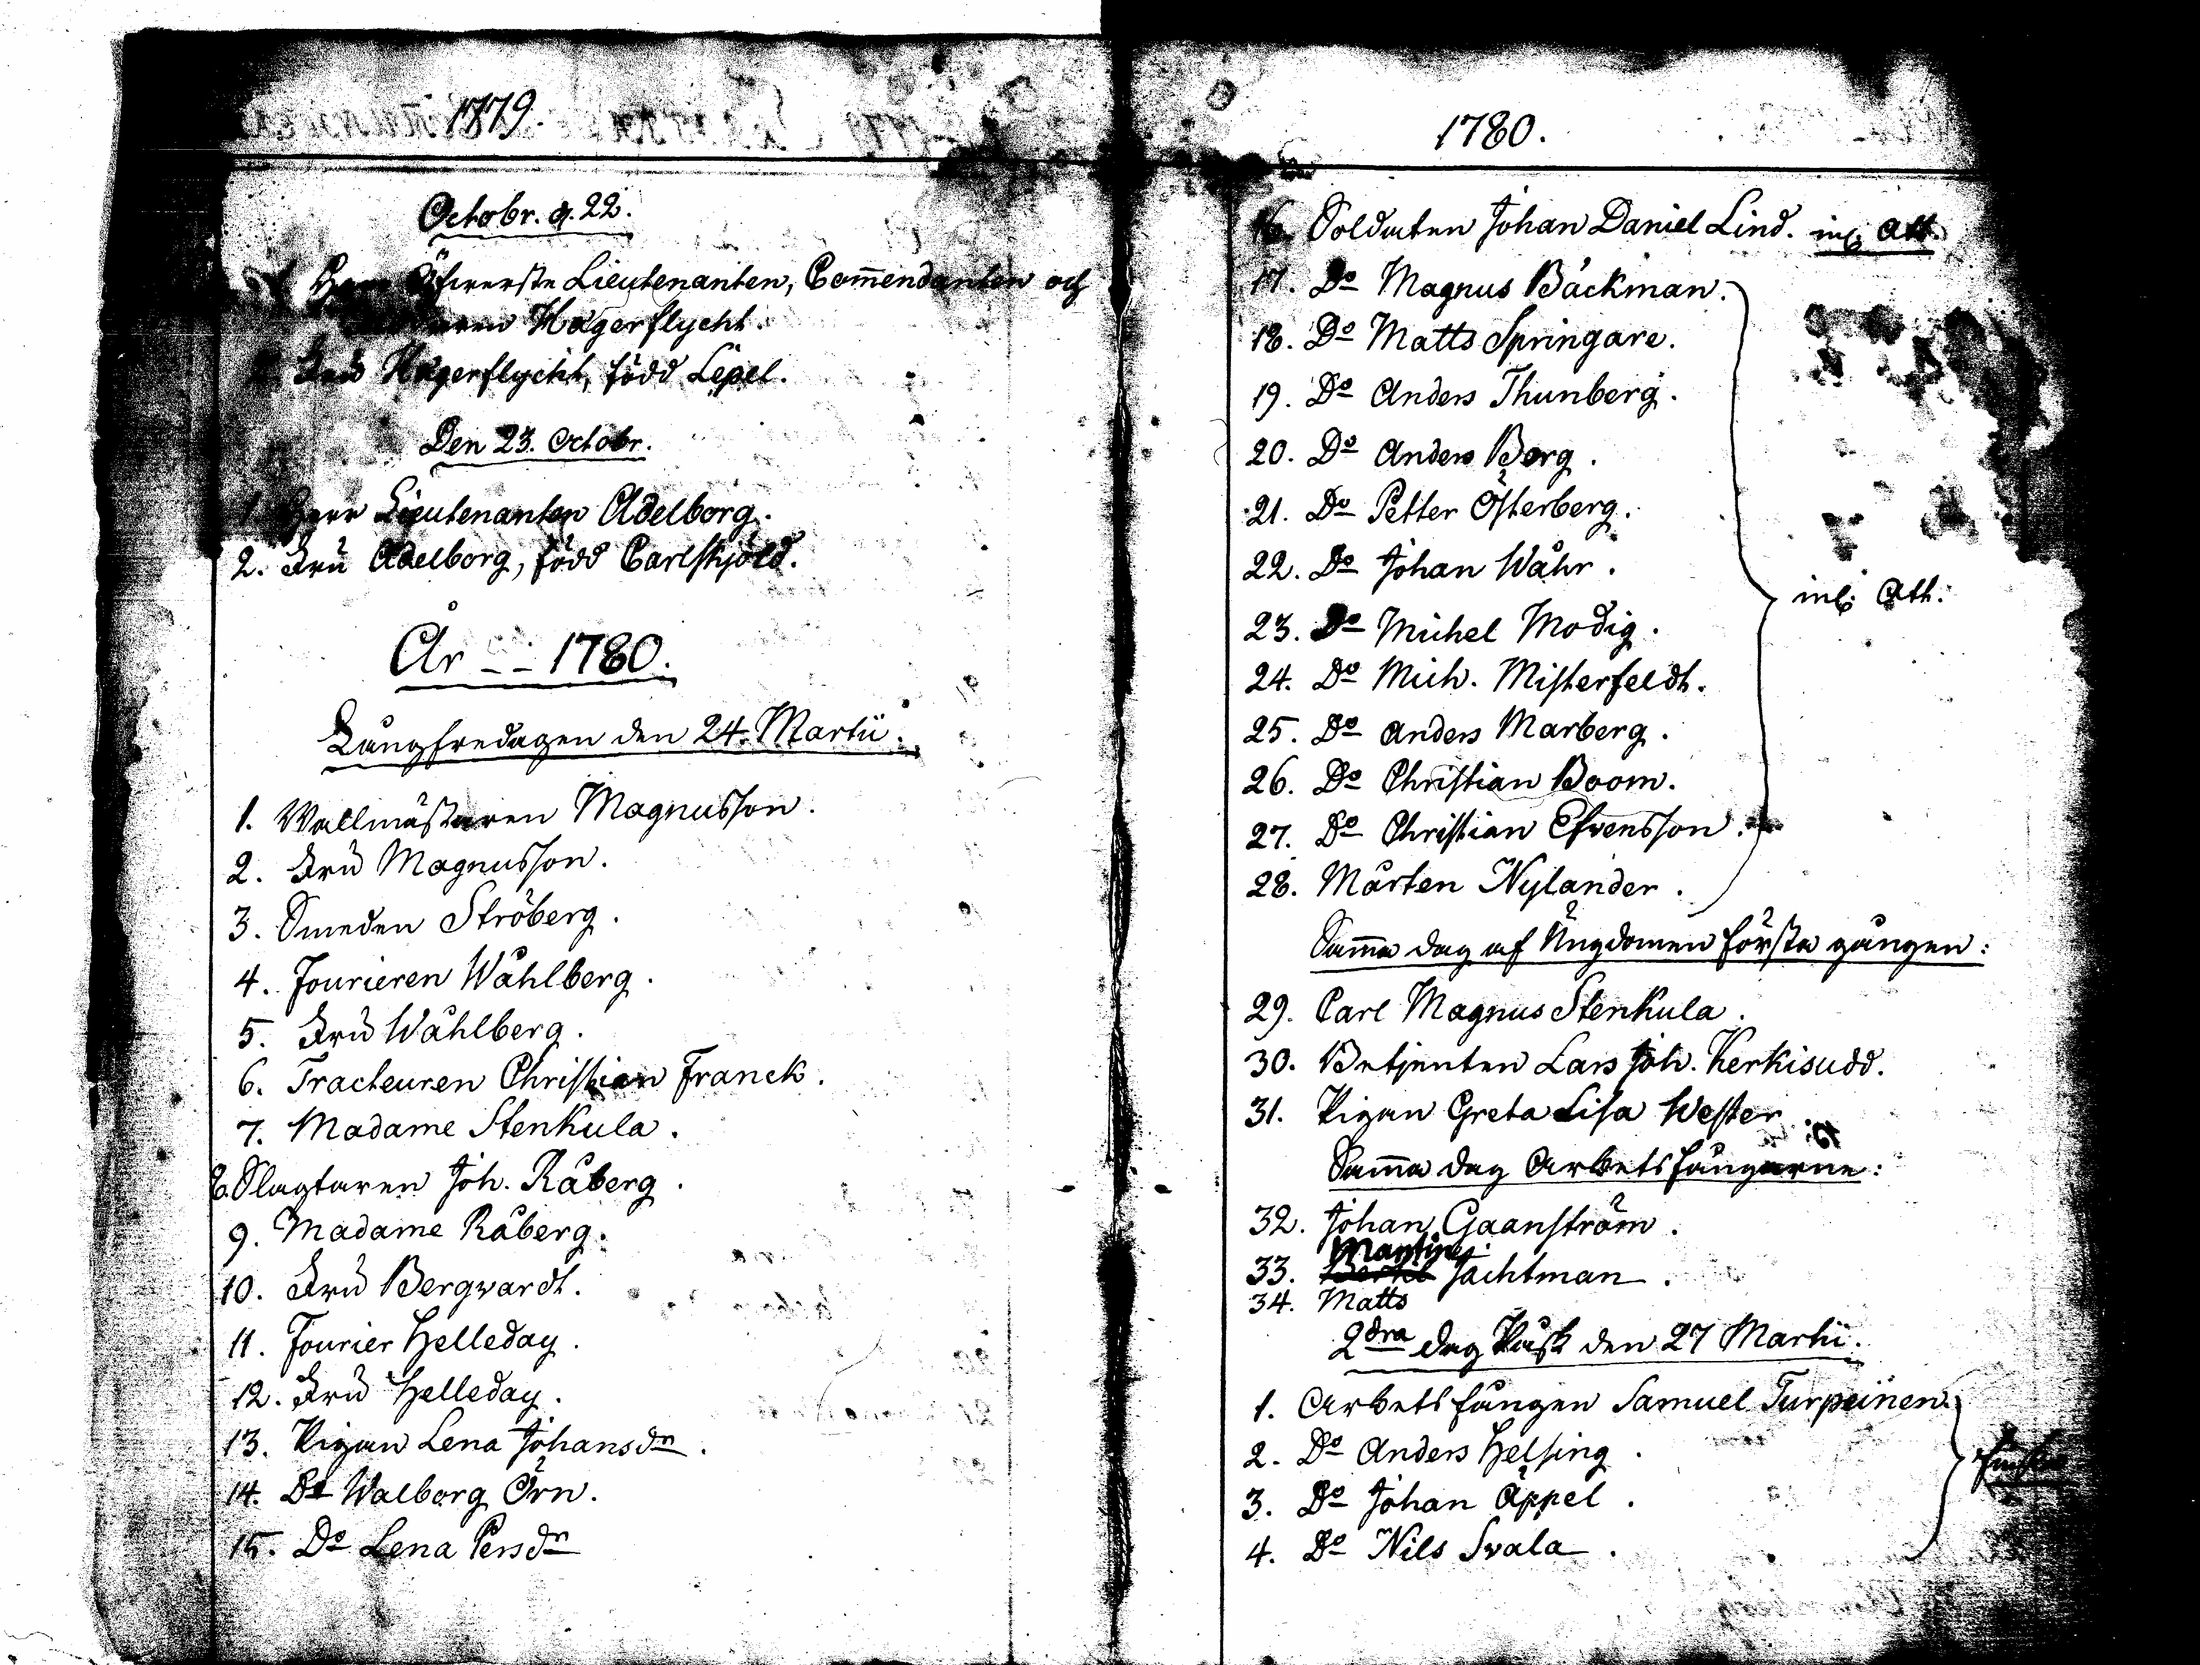 1779.
Octobr. d. 22.
Herr Öfwerste Lieutenanten, Com̄endanten och
Hägerflycht.
2. Fru Hägerflycht, född Lepel.
Den 23. Octobr.
1. Herr Lieutenanten Adelborg.
2. Fru Adelborg, född Carlskjöld.
År -- 1780.
Långfredagen den 24. Martii.
1. Wallmästaren Magnusson.
2. Fru Magnusson.
3. Smeden Ströberg.
4. Fourieren Wåhlberg.
5. Fru Wåhlberg.
6. Tracteuren Christian Franck.
7. Madame Stenkula.
8. Slagtaren Joh. Råberg.
9. Madame Råberg.
10. Fru Bergvardt.
11. Fourier Helleday.
12. Fru Helleday.
13. Pigan Lena Johansdr.
14. Do Walborg Örn.
15. Do Lena Persdr
1780.
16. Soldaten Johan Daniel Lind. inl. att.
17. Do Magnus Bäckman.
18. Do Matts Springare.
19. Do Anders Thunberg.
20. Do Anders Borg.
21. Do Petter Österberg.
22. Do Johan Wåhr.
23. Do Michel Modig.
24. Do Mich. Misterfeldt.
25. Do Anders Marberg.
26. Do Christian Boom.
27. Do Christian Efvensson.
28. Mårten Nylander.
inl. Att.
Sam̄a dag af Ungdomen första gången:
29. Carl Magnus Stenkula.
30. Betjenten Lars Joh. Kerkisudd.
31. Pigan Greta Lisa Wester.
Sam̄a dag Arbetsfångarne:
32. Johan Gaanström.
Martin
33. Jachtman.
34. Matts
2dra dag Påsk den 27 Martii.
1. Arbetsfången Samuel Turpeinen.
2. Do Anders Helsing.
3. Do Johan Äppel.
4. Do Nils Svala.